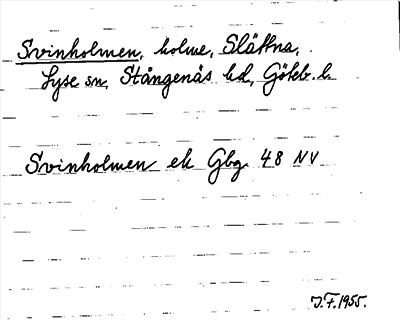 Svinholmen, holme, Slättna,
Lyse sn, Stångenäs hd, Göteb. l.
Svinholmen ek Gbg. 48 NV
J.F. 1955.